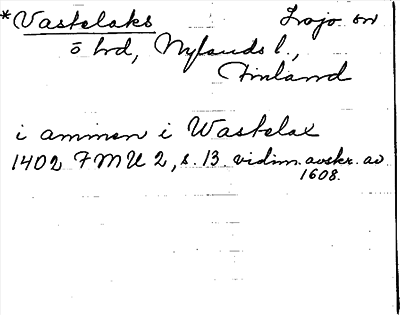 *Vastelaks Lojo sn
ö hd, Nylands l.,
Finland
i ammen i Wastelax
1402 FMU 2, s. 13. vidim. avskr. av
1608.